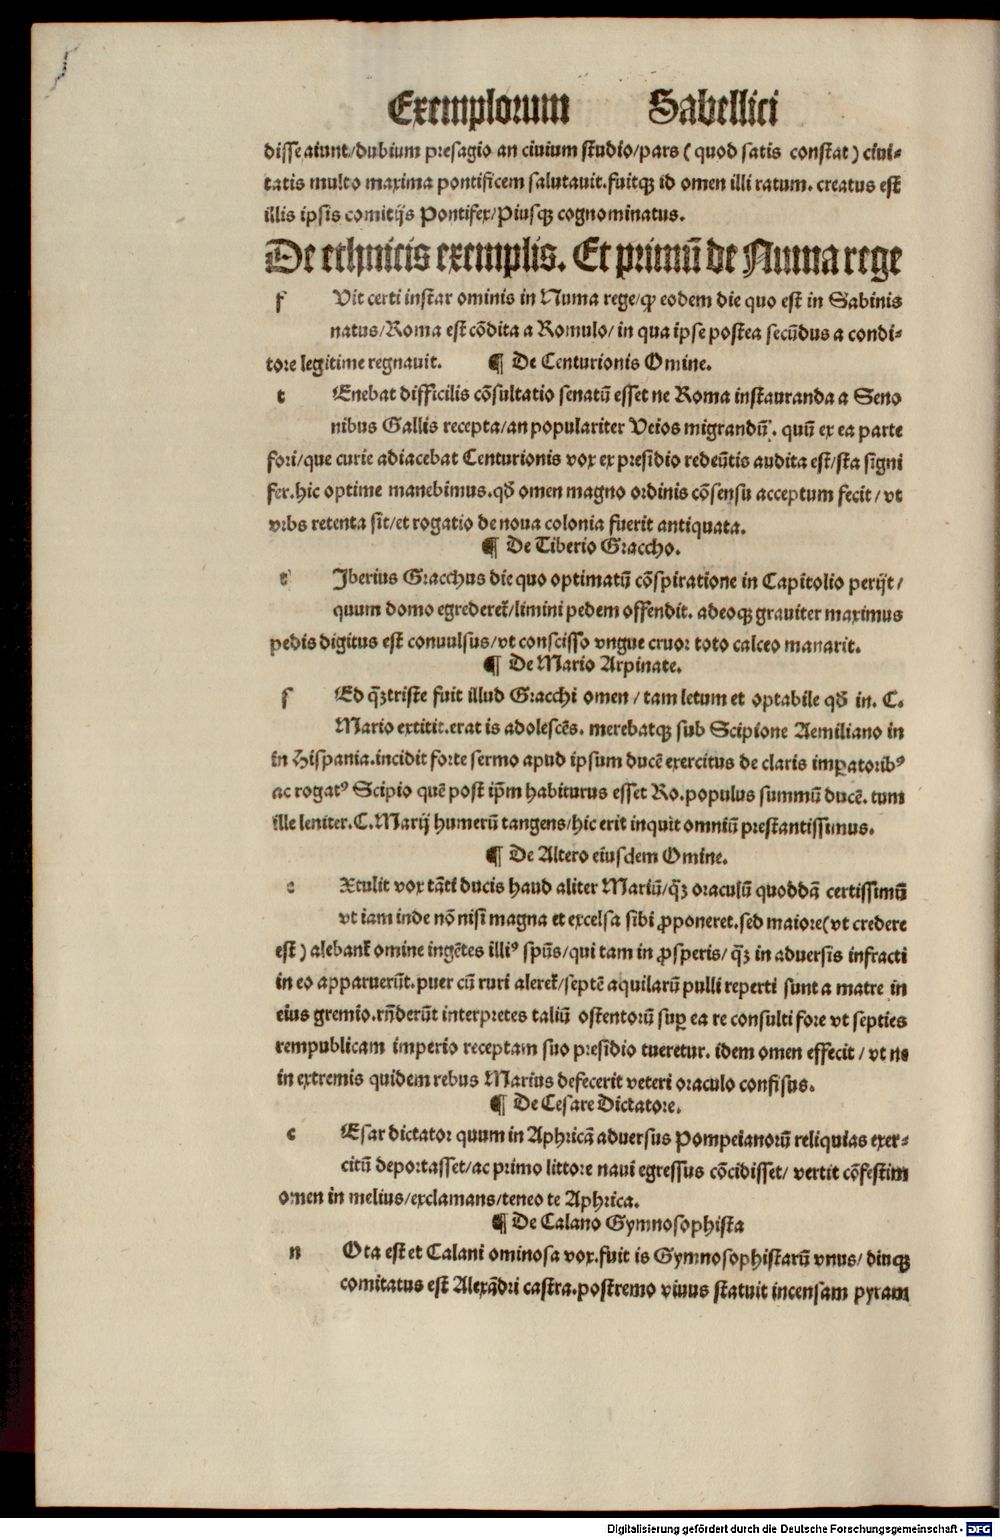 Exemplorum Sabellici
disse aiunt/dubium presagio an ciuium studio/pars (quod satis constat) ciui-
tatis multo maxima pontificem salutauit.fuitqꝫ id omen illi ratum. creatus est
illis ipsis comitijs Pontifex/Piusqꝫ cognominatus.
De ethnicis exemplis. Et primū de Numa rege
f Vit certi instar ominis in Numa rege/ꝙ eodem die quo est in Sabinis
natus/Roma est cōdita a Romulo/in qua ipse postea secūdus a condi-
tore legitime regnauit. ¶ De Centurionis Omine.
t Enebat difficilis cōsultatio senatū esset ne Roma instauranda a Seno
nibus Gallis recepta/an populariter Veios migrandū. quū ex ea parte
fori/que curie adiacebat Centurionis vox ex presidio redeūtis audita est/sta signi
fer.hic optime manebimus.qď omen magno ordinis cōsensu acceptum fecit/vt
vrbs retenta sit/et rogatio de noua colonia fuerit antiquata.
¶ De Tiberio Graccho.
t Jberius Gracchus die quo optimatū cōspiratione in Capitolio perijt/
quum domo egrederet̃/limini pedem offendit. adeoqꝫ grauiter maximus
pedis digitus est conuulsus/vt conscisso vngue cruor toto calceo manarit.
¶ De Mario Arpinate.
s Ed q̃ꝫ triste fuit illud Gracchi omen/tam letum et optabile qď in. C.
Mario extitit.erat is adolescēs. merebatqꝫ sub Scipione Aemiliano in
in Hispania.incidit forte sermo apud ipsum ducē exercitus de claris imꝑatoribꝰ
ac rogatꝰ Scipio quē post ip̄m habiturus esset Ro.populus summū ducē. tum
ille leniter.C.Marij humerū tangens/hic erit inquit omniū prestantissimus.
¶ De Altero eiusdem Omine.
e Xtulit vox tāti ducis haud aliter Mariū/q̃ꝫ oraculū quoddā certissimū
vt iam inde nō nisi magna et excelsa sibi ꝓponeret.sed maiore(vt credere
est) alebant̃ omine ingētes illiꝰ sp̄us/qui tam in ꝓsperis/ q̃ꝫ in aduersis infracti
in eo apparuerūt.puer cū ruri aleret̃/septē aquilarū pulli reperti sunt a matre in
eius gremio.rn̄derūt interpretes taliū ostentorū suꝑ ea re consulti fore vt septies
rempublicam imperio receptam suo presidio tueretur. idem omen effecit/vt ne
in extremis quidem rebus Marius defecerit veteri oraculo confisus.
¶ De Cesare Dictatore.
c Esar dictator quum in Aphricā aduersus Pompeianorū reliquias exer-
citū deportasset/ac primo littore naui egressus cōcidisset/ vertit cōfestim
omen in melius/exclamans/teneo te Aphrica.
¶ De Calano Gymnosophista
n Ota est et Calani ominosa vox.fuit is Gymnosophistarū vnus/ diuqꝫ
comitatus est Alexādri castra.postremo viuus statuit incensam pyram
Digitalisierung gefördert durch die Deutsche Forschungsgemeinschaft - DFG